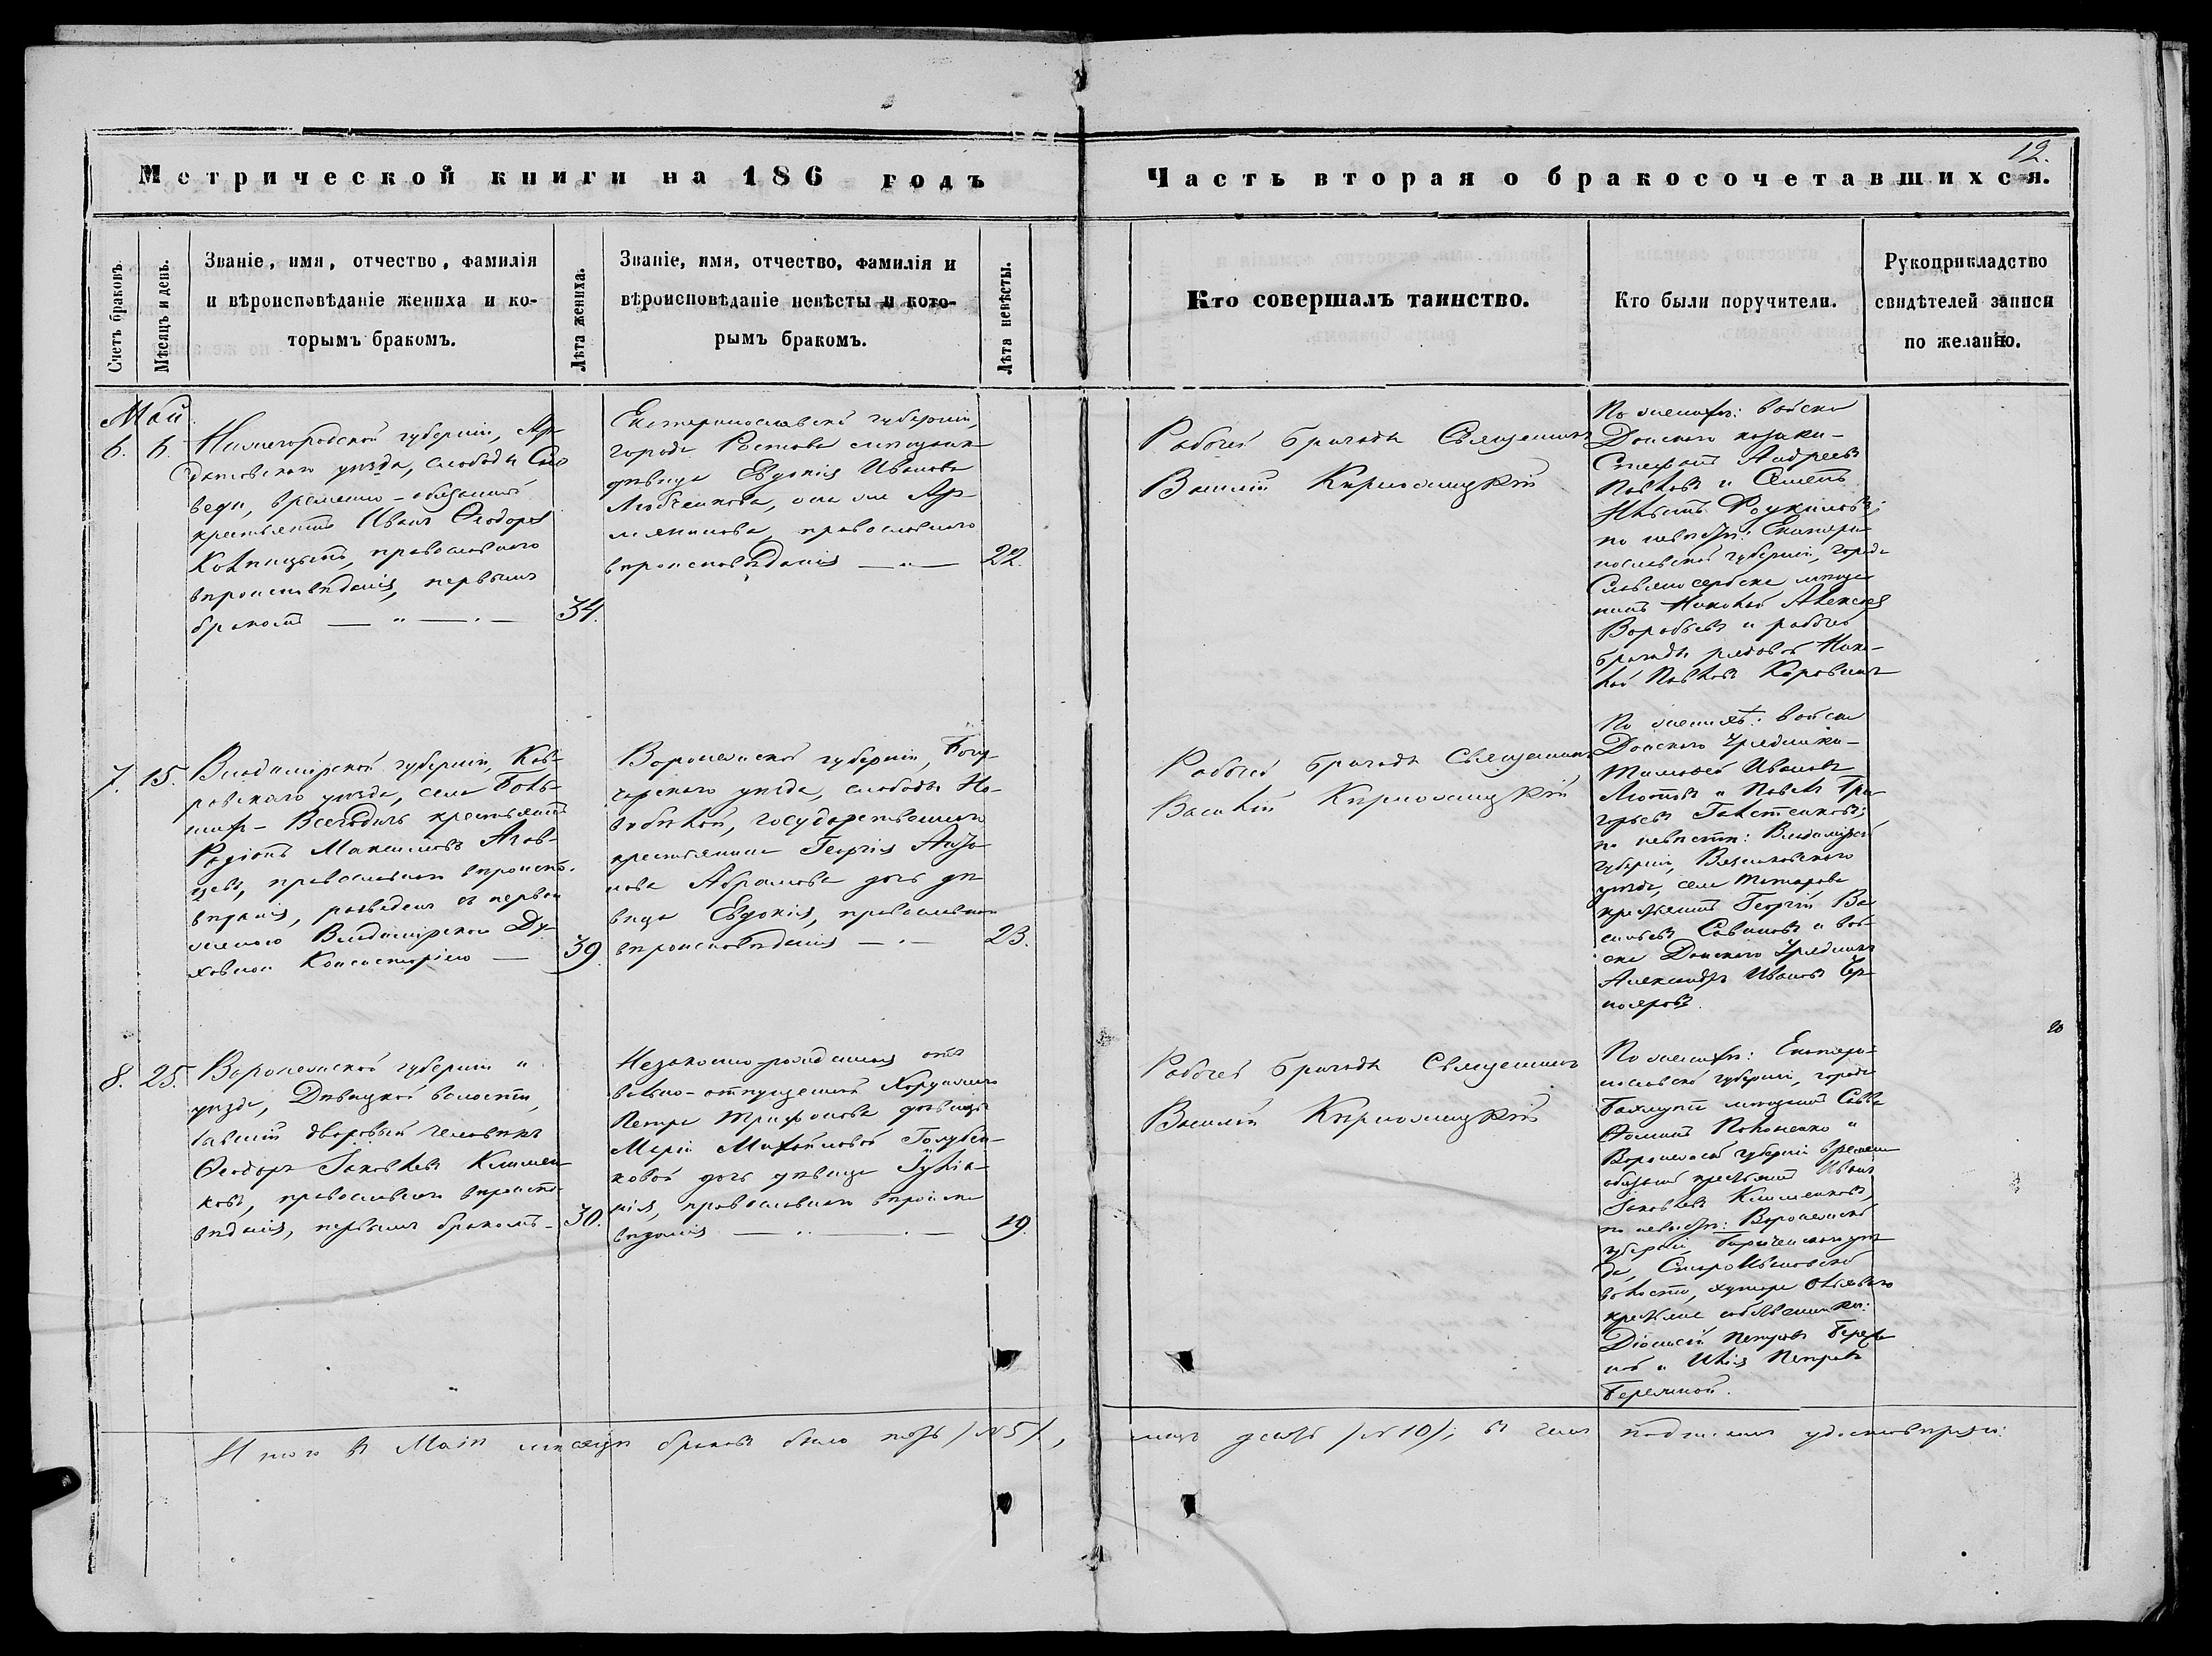 12.
Метрической книги на 186 годъ
Часть вторая о бракосочетавшихся.
Счетъ браковъ.
Мѣсяцъ и день.
Званіе, имя, отчество, фамилія
и вѣроисповѣданіе жениха и ко-
торымъ бракомъ.
Лѣта жениха.
Званіе, имя, отчество, фамилія и
вѣроисповѣданіе невѣсты и кото-
рымъ бракомъ.
Лѣта невѣсты.
Кто совершалъ таинство.
Кто были поручители.
Рукоприкладство
свидѣтелей записи
по желанію.
Май
6. 6. Нижегородской губерніи, Ар-
датовскаго уѣзда, слободы
временно-обязанный
крестьянинъ Иванъ Ѳеодоровъ
православнаго
вѣроисповѣданія, первымъ
бракомъ — „ — . —
34.
Екатеринославской губерніи,
города Ростова мѣщанка
дѣвица Евдокія Иванова
она же
православнаго
вѣроисповѣданія — „ —
22.
Рабочей бригады Священникъ
Василій Кирножицкій
По женихѣ: войска
Донскаго козаки-
Стефанъ Андреевъ
Павловъ и Семенъ
по невѣстѣ: Екатери-
нославской губерніи, города
Славяносербска мѣща-
нинъ Николай Алексѣев
Воробьевъ и рабочей
бригады рядовой Нико-
лай Павловъ
7. 15. Владимірской губерніи, Ков-
ровскаго уѣзда, села Боль-
шихъ-Всегодичъ крестьянинъ
Родіонъ Максимовъ
православнаго вѣроиспо-
вѣданія, разведенъ съ первою
женою Владимірскою Ду-
ховною Консисторіею —
39.
Воронежской губерніи, Богу-
чарскаго уѣзда, слободы Но-
вобѣлой, государственнаго
крестьянина Георгія
Абрамова дочь дѣ-
вица Евдокія, православнаго
вѣроисповѣданія — . —
23.
Рабочей бригады Священникъ
Василій Кирножицкій
По женихѣ: войска
Донскаго Урядники-
Тимофей Ивановъ
и Павелъ Гри-
горьевъ
по невѣстѣ: Владимірской
губерніи, Вязниковскаго
уѣзда, села Татарова
крестьянинъ Георгій Ва-
сильевъ Савиновъ и вой-
ска Донскаго Урядникъ
Александръ Ивановъ Чер-
нояровъ.
8. 25. Воронежской губерніи и
уѣзда, Дѣвицкой волости,
бывшій дворовый человѣкъ
Ѳеодоръ Іаковлевъ Климен-
ковъ, православнаго вѣроиспо-
вѣданія, первымъ бракомъ -
30.
Незаконно-рожденная отъ
вольно-отпущенной Хорунжаго
Петра Трифонова дѣвицы
Маріи Михайловой Голубен-
ковой дочь дѣвица Іуліа-
нія, православнаго вѣроиспо-
вѣданія — .. — . —
19.
Рабочей бригады Священникъ
Василій Кирножицкій
По женихѣ: Екатери-
нославской губерніи, города
Бахмута мѣщанинъ Савва
Ѳоминъ и
Воронежской губерніи временно
обязанный крестьянинъ Иванъ
Іаковлевъ Клименковъ,
по невѣстѣ: Воронежской
губерніи, Бирюченскаго уѣз-
да, СтароИвановской
волости, хутора Ольховаго
крестьяне собственники:
Діонисій Петровъ Береж-
ной и Илія Петровъ
Бережной.
Итого въ Маіи мѣсяцѣ браковъ было пять /№5/,
лицъ десять /№10/; въ чемъ подписомъ удостовѣряемъ: